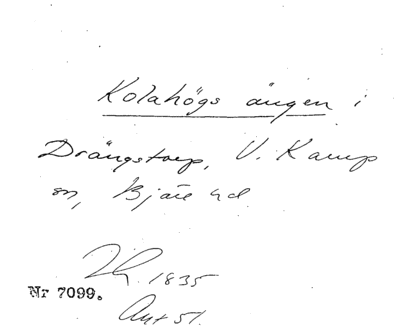 Kolahögs ängen i
Drängstorp, V. Karup
sn, Bjäre hd.
1835
Nr 7099.
Akt 51.